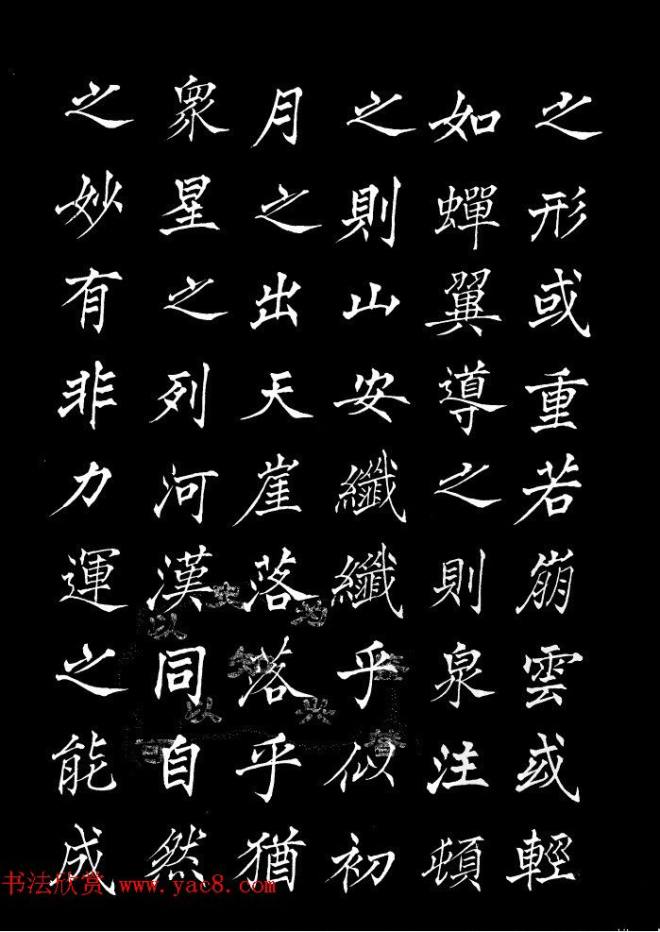 之形或重若崩雲或輕
如蟬翼導之則泉注頓
之則山安纖纖乎似初
月之出天崖落落乎猶
眾星之列河漢同自然
之妙有非力運之能成
书法欣赏 www.yac8.com